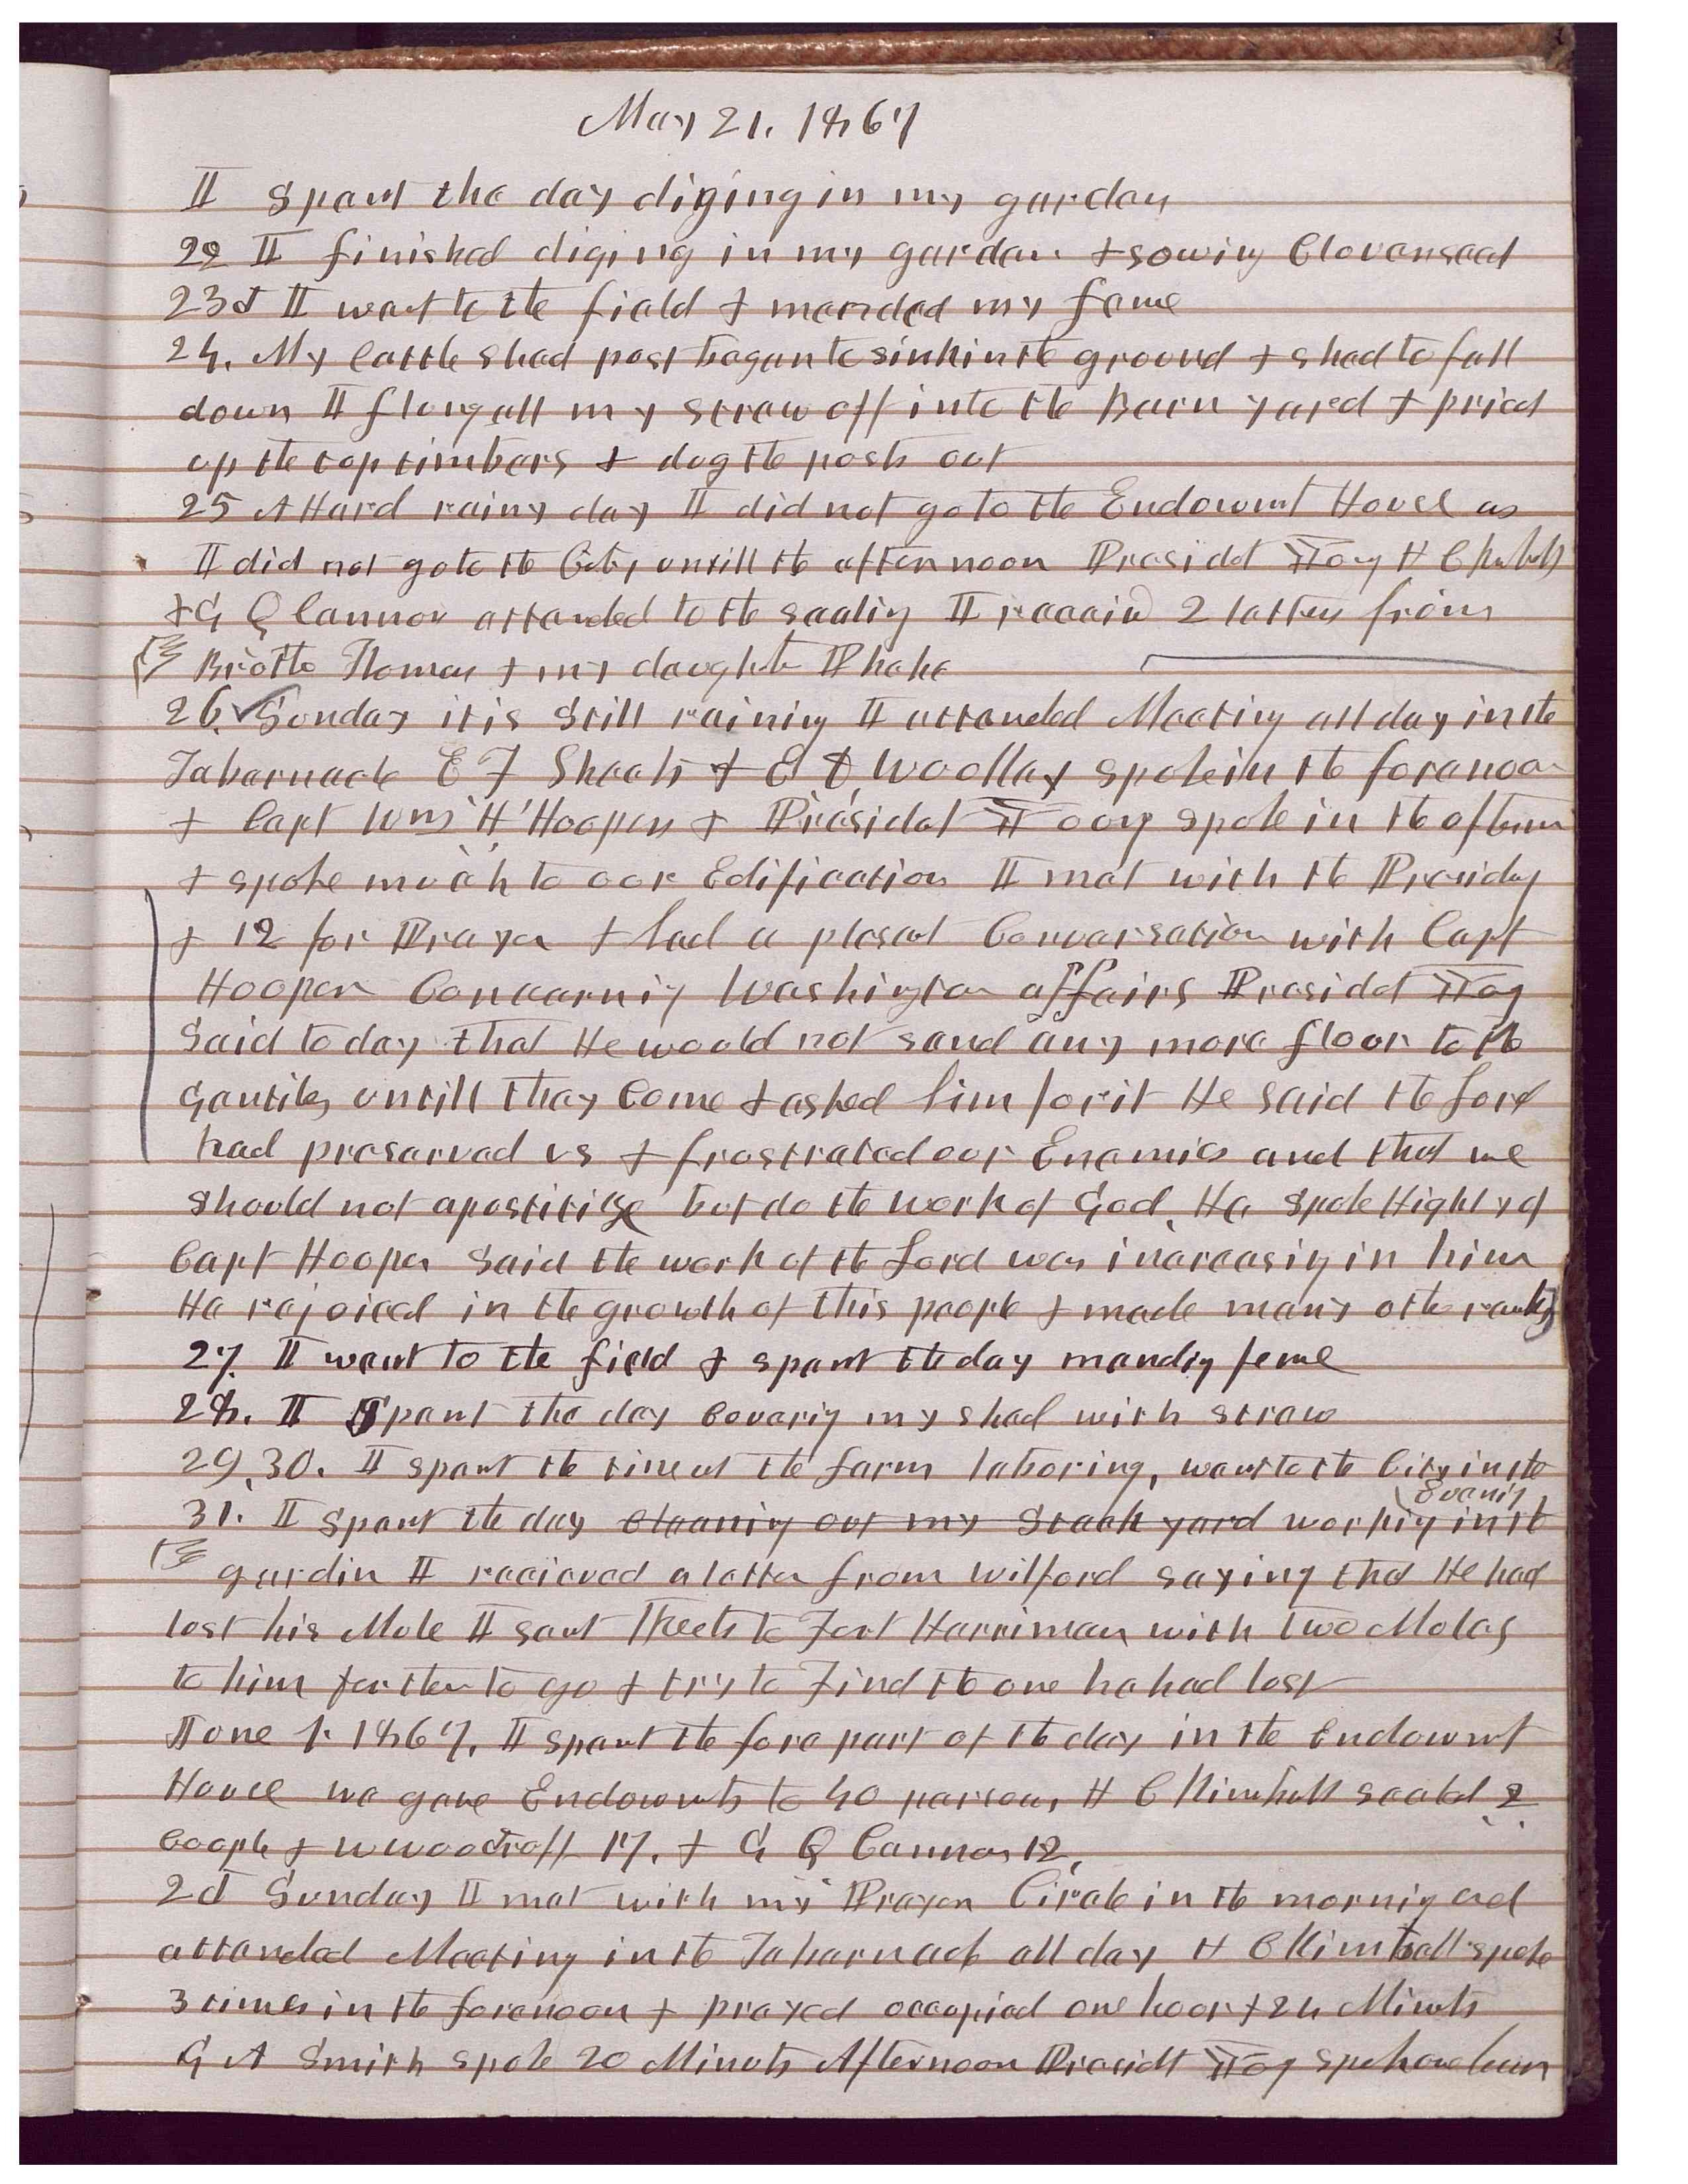 May 21. 1867
I spent the day diging in my garden
22 I finished diging in my garden & sowing Cloverseed
23d I went to the field & mended my fence
24. My Cattle shed post began to sink in the ground & shed to fall
down I flung all my straw off into the Barn yard & pried
up the top timbers & dug the posts out
25 A Hard rainy day I did not go to the Endowmt House as
I did not go to the City untill the afternoon Presidet Young H C Kimball
& G Q Cannon attended to the sealing I receivd 2 letters from
Brothe Thomas & my daughte Phebe
26. Sunday it is still raining I attended Meeting all day in the
Tabernacle E F Sheets & E D Woolley spoke in the forenoon
& Capt Wm H Hooper & Presidet Young spoke in the afternn
& spoke much to our Edification I met with the Presidey
& 12 for Prayer & had a plesant Conversation with Capt
Hooper Concerning Washington affairs Presidet Young
Said to day that He would not send any more flour to the
Gentiles untill they Come & asked him for it He said the Lord
had preserved us & frustrated our Enemies and that we
should not apostitise but do the work of God. He spoke Highly of
Capt Hooper said the work of the Lord was increasing in him
He rejoiced in the growth of this people & made many othe remks
27. I went to the field & spent the day mending fence
28. I Spent the day Covering my shed with straw
29, 30. I spent the time at the farm laboring, went to the City in the
Evenig
31. I spent the day cleaning out my Stack yard working in the
gardin I recieved a letter from Wilford saying that He had
lost his Mule I sent Keets to Fort Harriman with two Mules
to him for them to go & try to Find the one he had lost
June 1. 1867. I spent the fore part of the day in the Endowmt
House we gave Endowmts to 40 persons H C Kimball sealed 2
Couple & W Woodruff 17. & G Q Cannon 12.
2d Sunday I met with my Prayer Circle in the mornig and
attended Meeting in the Tabernacle all day H C Kimball spoke
3 times in the forenoon & prayed occupied one hour & 24 Minuts
G A Smith spoke 20 Minuts Afternoon Presidt Young spoke one hour